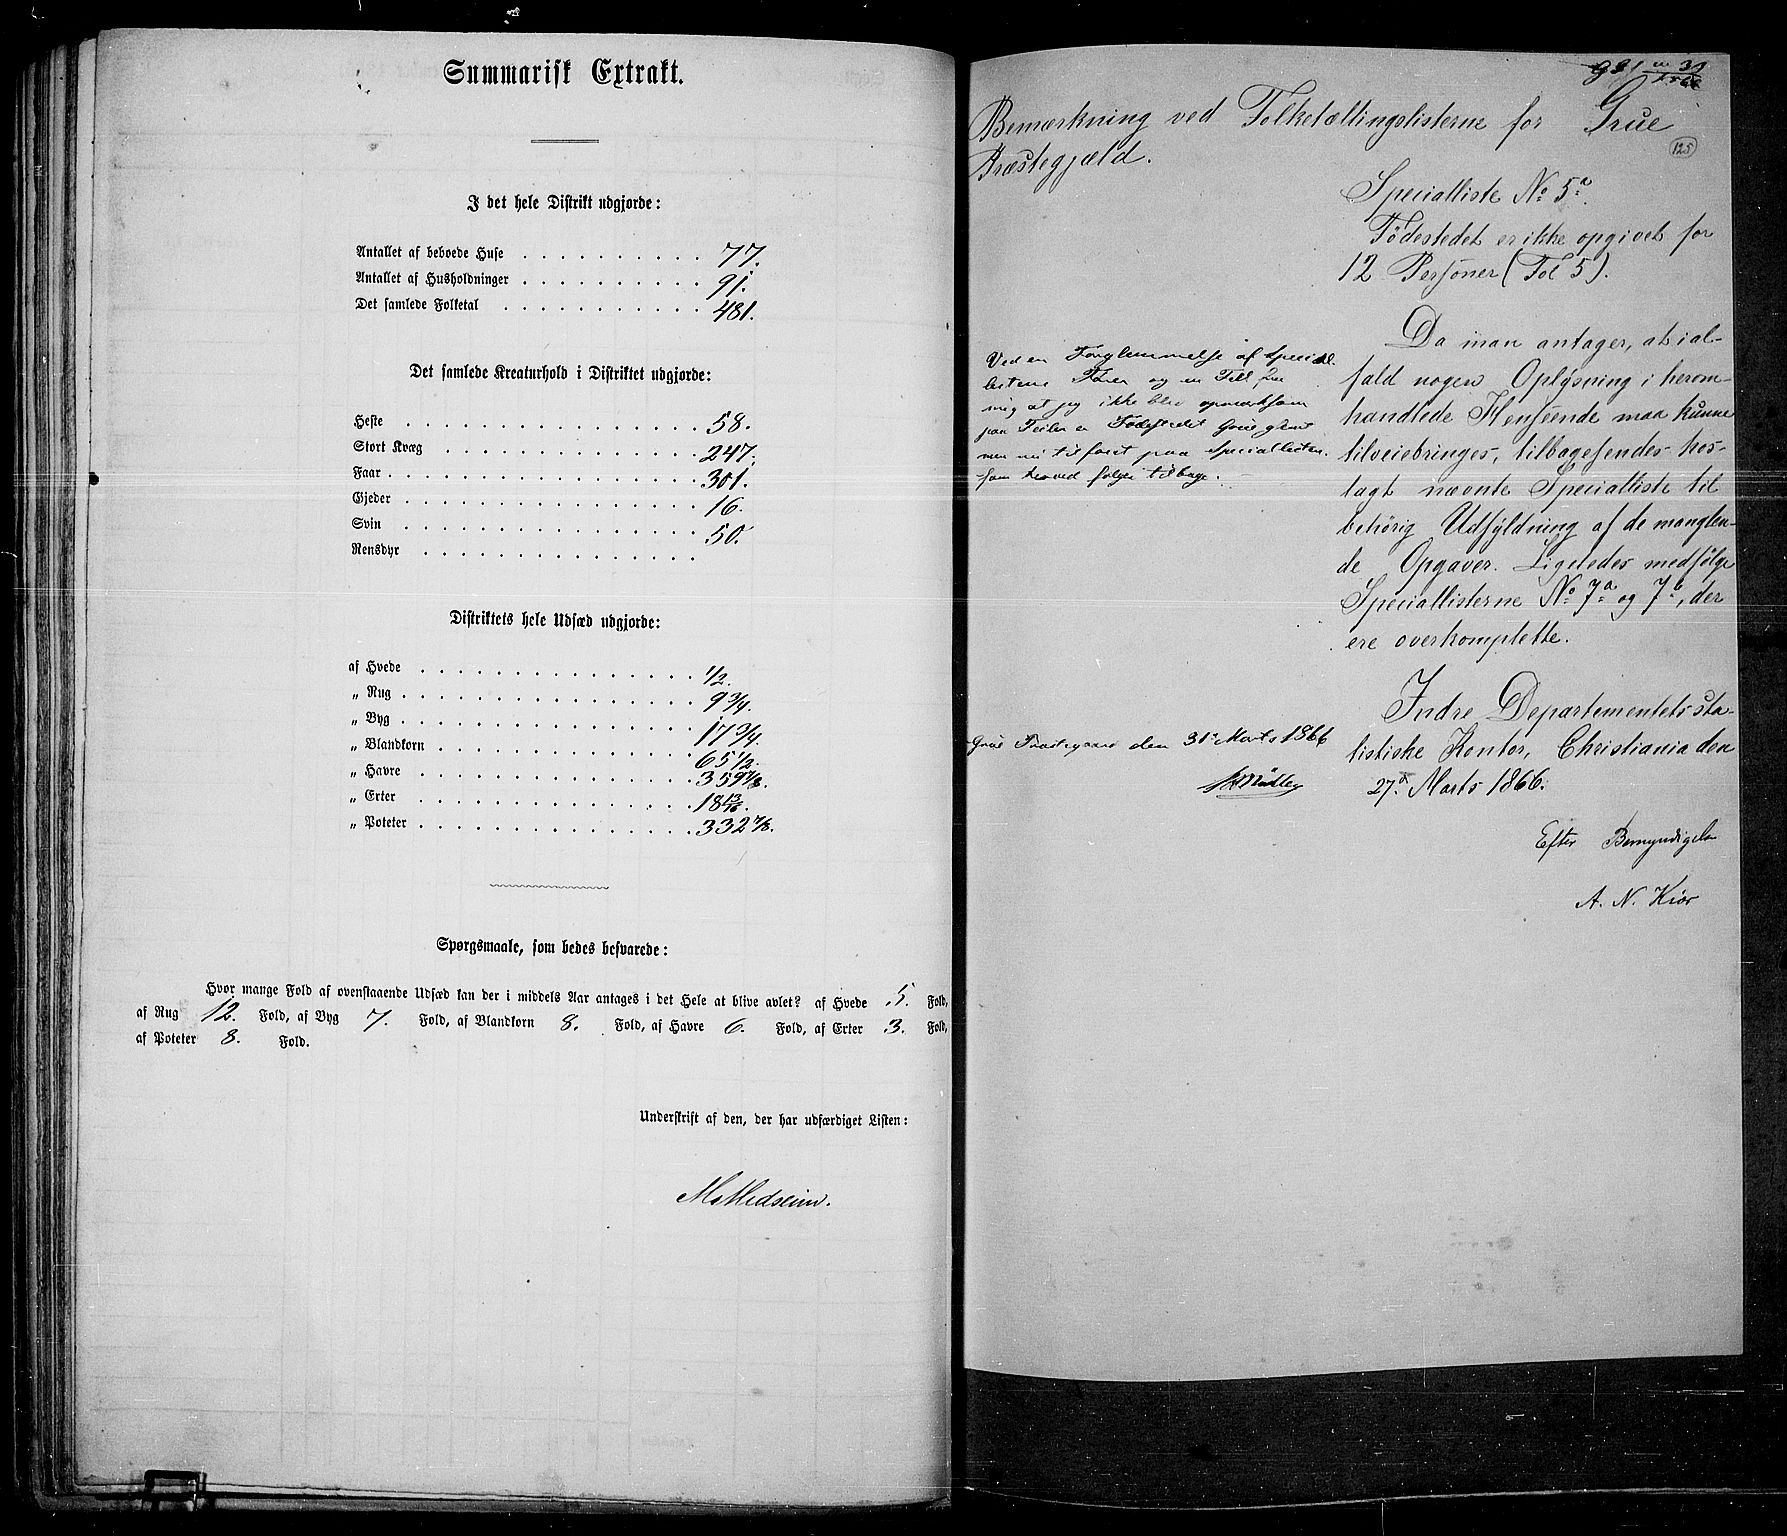 Summarisk Extrakt.
I det hele Distrikt udgjorde:
Antallet af beboede Huse . . . . . . . . . . 77.
Antallet af Husholdninger . . . . . . . . . . 91.
Det samlede Folketal . . . . . . . . . . . 481.
Det samlede Kreaturhold i Distriktet udgjorde:
Heste . . . . . . . . . . . . . . . 58.
Stort Kvæg . . . . . . . . . . . . . 247.
Faar . . . . . . . . . . . . . . . . 301.
Gjeder . . . . . . . . . . . . . . . 16.
Svin . . . . . . . . . . . . . . . 50.
Rensdyr . . . . . . . . . . . . . .
Distriktets hele Udsæd udgjorde:
af Hvede . . . . . . . . . . . . . . 1/2.
„ Rug . . . . . . . . . . . . . . . 9 3/4.
„ Byg . . . . . . . . . . . . . . . 17 3/4.
„ Blandkorn . . . . . . . . . . . . . 65 1/2.
„ Havre . . . . . . . . . . . . . . 359 7/8.
„ Erter . . . . . . . . . . . . . . 18 13/16.
„ Poteter . . . . . . . . . . . . . . 332 7/8.
Spørgsmaale, som bedes besvarede:
Hvor mange Fold af ovenstaaende Udsæd kan der i middels Aar antages i det Hele at blive avlet? af Hvede 5. Fold,
af Rug 12. Fold, af Byg 7. Fold, af Blandkorn 8. Fold, af Havre 6. Fold, af Erter 3. Fold,
af Poteter 8. Fold.
Underskrift af den, der har udfærdiget Listen:
125
Bemærkning ved Folketællingslisterne for Grue
Præstegjæld.
Specialliste No 5a.
Fødestedet er ikke opgivet for
12 Personer (Fol 5).
Da man antager, at ial-
fald nogen Oplysning i herom-
handlede Henseende maa kunne
tilveiebringes, tilbagesendes hos-
lagt nævnte Specialliste til
behörig Udfyldning af de manglen-
de Opgaver. Ligeledes medfölge
Speciallisterne No 7a og 7b, der
ere overkomplette.
Indre Departementets sta-
tistiske Kontor, Christiania den
27d. Marts 1866.
Efter Bemyndigelse
A. N. Kiær
Ved en Forglemmelse af Special
listens Fører og en Feil fra
mig at jeg ikke blev opmærksom
paa Feilen er Fødestedet Grue glemt
men nu tilføiet paa Speciallisten.
som herved følger tilbage.
Grue Præstegaard den 31te Marts 1866